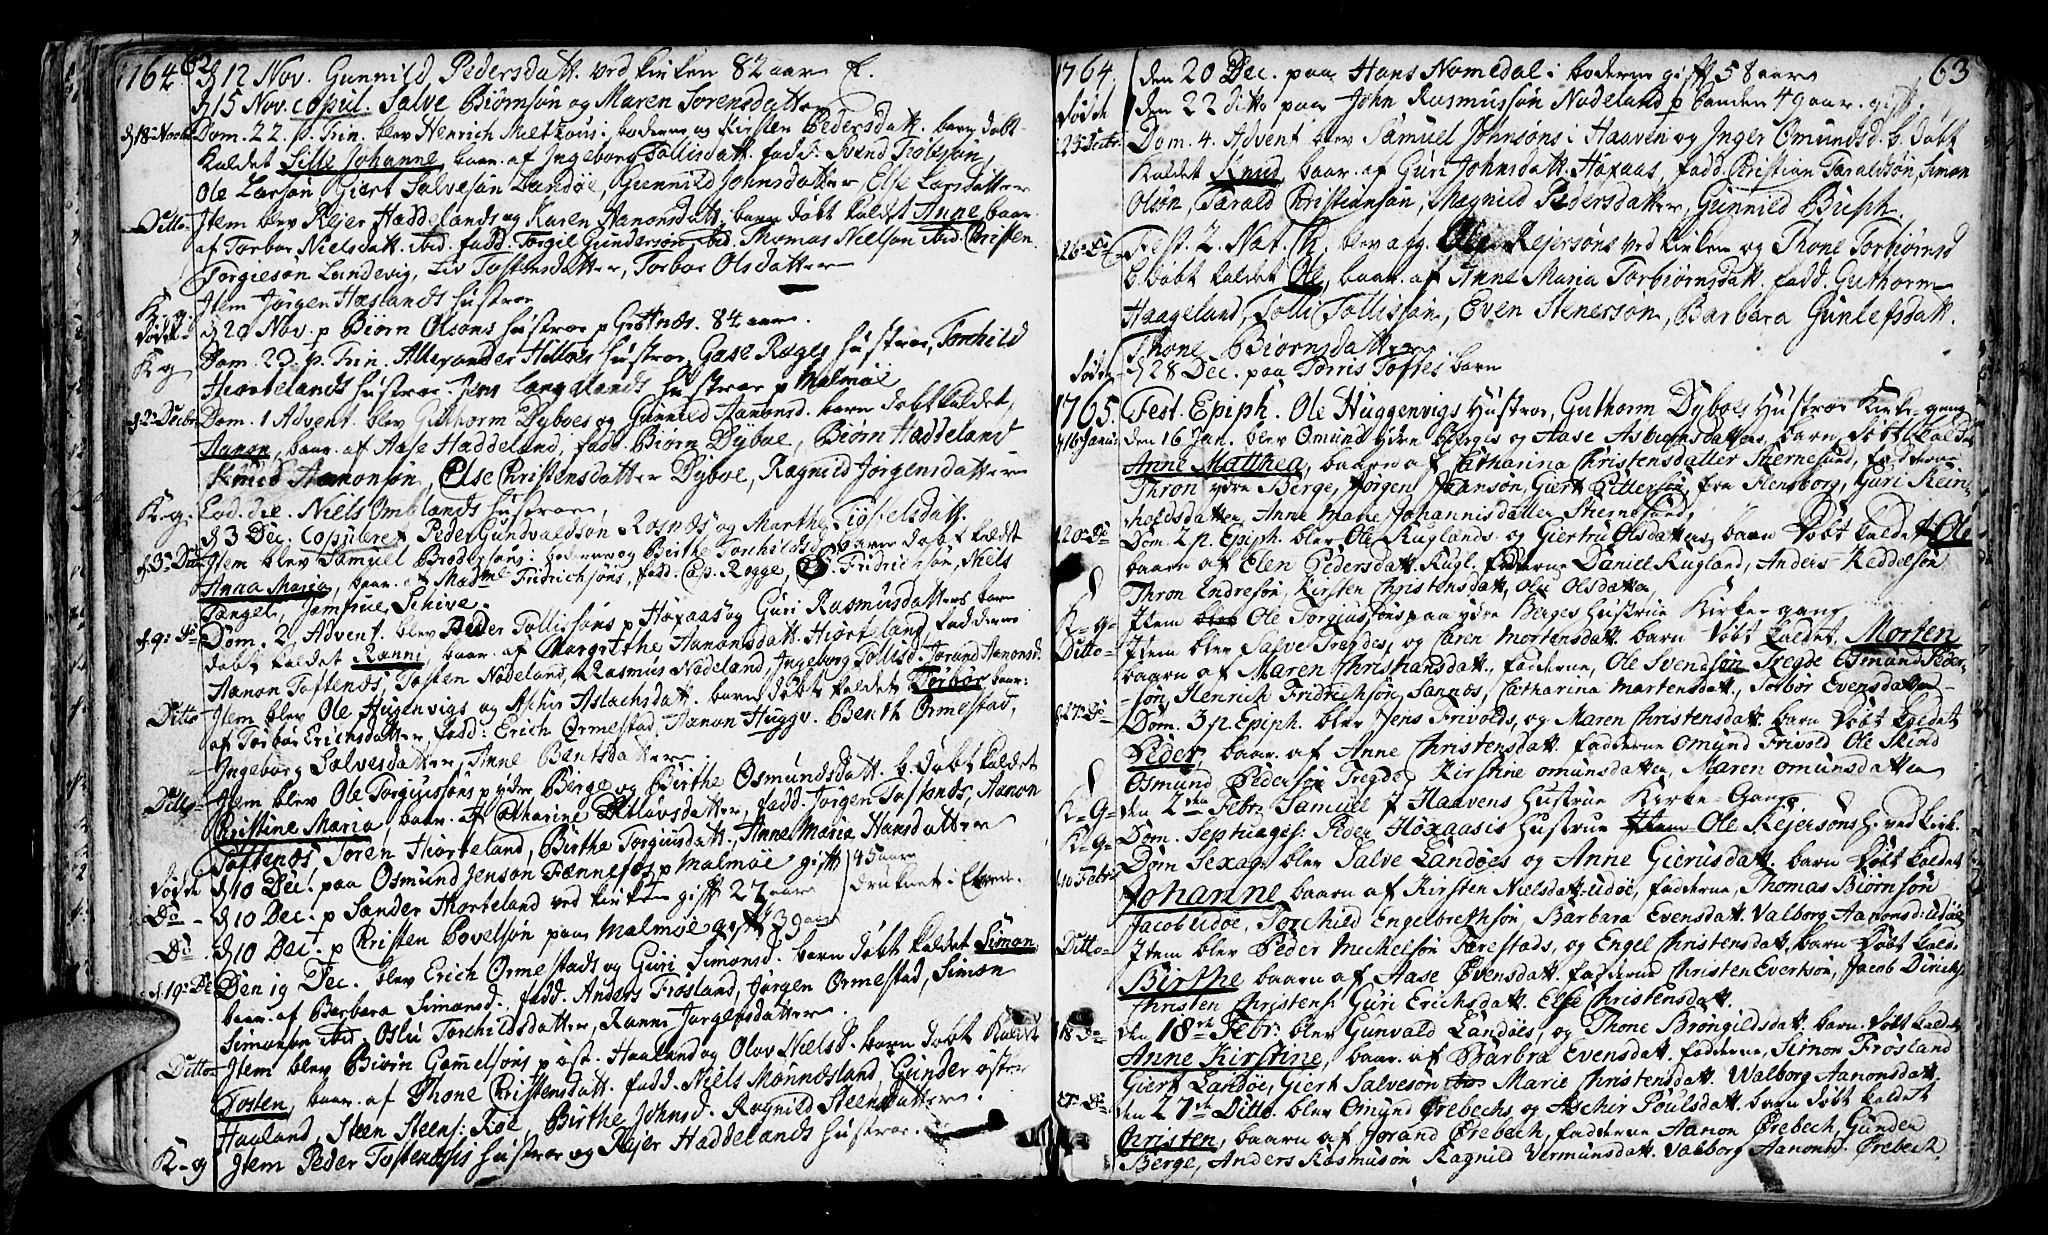 1764
62
d 12 Nov. Gunnild Pedersdatt. ved kirken 82 aar
d 15 Nov. copul. Salve Biørnsøn og Maren Sørensdatter
d 18 Novbr Dom. 22. p. Trin. blev Henrich i boderne og Kirsten Pedersdatt. barn døbt
Kaldet Sille Johanne baar. af Ingeborg Tollisdatt. fadd. Svend
Ole Larsøn, Giert Salvesøn Landøe, Gunnild Johnsdatter, Else Larsdatter
Ditto Item blev Rejer Haddelands og Karen Aanonsdatt. barn døbt kaldet Anne baar.
af Torbor Nielsdatt. ibid. fadd. Torgil Gundersøn, ibid. Thomas Nielson ibid. Christen
Torgieson Landevig, Liv Tostensdatter, Torbor Olsdatter
K-g. Item Jørgen Haslands Hustroe
Døde d 20 Nov. p Biørn Olsøns Hustroe p 84 aar.
K-g Dom. 23. p. Trin. Allexander Hustroe, Hustroe, Torchild
Hiortelands Hustroe. Jens Langelands Hustroe p Malmøe
d 2 Decbr Dom. 1 Advent. blev Guthorm Dyboes og Gunnild Aanonsd. barn døbt kaldet,
Aanon, baar. af Aase Haddeland, fadd. Biørn Dyboe, Biørn Haddeland
Knud Aanonsøn, Else Christensdatter Dyboe, Ragnild Jørgensdatter
K-g. Eod. die. Niels Omblands Hustroe,
d 3 Dec. Copuleret Peder Gundvaldsøn Rosnes og Marthe
d. 3 Do Item blev Samuel Brodersens i boderne og Birthe Torchildsd. barn døbt kaldet
Anna Maria, baar. af Madme Fridrichsøns, fadd. Cap. Rogge, Fridrichsøn, Niels
Tangel, Jomfrue Schive.
d. 9. Do Dom. 2. Advent. blev Peder Tollisøns p Høxaas og Guri Rasmusdatters barn
døbt kaldet Ranni, baar. af Margrethe Aanonsdatt. Hiorteland, fadderne
Aanon Toftenes, Tosten Nødeland, Rasmus Nødeland, Ingeborg Tollisd. Jorand Aanonsd.
Ditto Item blev Ole Hugenvigs og Aschir Aslachsdatt. barn døbt kaldet Torbor baar:
af Torbor Erichsdatter, fadd: Erich Ormestad, Aanon Huggv. Bent Ormestad,
Ingeborg Salvesdatter, Anne Bentsdatter
Ditto Item blev Ole Torgiussøns p ydre Berge og Birthe Osmundsdatt. b. døbt kaldet
Christine Maria, baar. af Catharine Ditlavsdatter, fadd. Jørgen Toftenes, Aanon
Toftenes Søren Hiorteland, Birthe Torgiusdatt., Anne Maria Hansdatter
Døde d 10 Dec! paa Osmund Jenson Fænnefos p Malmøe gift 45 aar
Do d 10 Dec. p Sander Hiorteland ved kirken gift 27 aar druknet i
Do d 10 Dec. p Christen Povelsøn paa Malmøe gift 39 aar
d. 19. De Den 19 Dec. blev Erich Ormestads og Guri Simonsd. barn døbt kaldet Simon
baar. af Barbara Simonsd. fadd. Anders Frøsland, Jørgen Ormestad, Simon
Simonsøn ibid. Torchildsdatter, Ranni Jørgensdatter.
Ditto Item blev Biørn Gamelsøns p øst. Haaland og Olov Nielsd. barn døbt Kaldet
Tosten, baar. af Thone Christensdatt. fadd. Niels Mønnesland, Gunder østre
Haaland, Steen Steens: Roe, Birthe Johnsd. Ragnild Steensdatter.
K-g Item Peder Tostensøns Hustroe og Rejer Haddelands Hustroe.
1764.
63
Døde den 20 Dec. paa Hans Nomedal i boderne gift 58 aar
den 22 ditto paa John Rasmussøn Nødeland p Sanden 49 aar. gift.
Dom. 4. Advent blev Samuel Johnsøns i Haaven og Inger Omundsd. b. døbt
Kaldet Knud baar. af Guri Johnsdatt. Høxaas, fadd. Christian Taraldsøn, Simon
Olsøn, Tarald Christiansøn, Magnild Pedersdatter, Gunnild
26 Do Fest. 2. Nat. Ch. blev agg. Ole Rejersøns ved kirken og Thone Torbiørnsd
b. døbt kaldet Ole, baar. af Anne Maria Torbiørnsdatt. fadd. Guthorm
Haageland, Tolli Tollissøn, Even Stenersøn, Barbara Gunlefsdatt.
Thone Biørnsdatter
Døde d 28 Dec. paa Torris Toftes barn
1765. Fest. Epiph. Ole Huggenvigs Hustroe, Guthorm Dyboes Hustroe Kirke-gang
d 16 Janu: den 16 Jan. blev Omund ydre Bergis og Aase Asbiørnsdatters barn Døbt kaldet
Anne Matthea, baaren af Catharina Christensdatter Sternesund, fadderne
Thron ydre Berge, Jørgen Hansøn, Giert Pettersøn fra Flensborg, Guri Rein-
holdsdatter, Anne Marie Johannisdatter Sternesund.
20 Do Dom. 2 p. Epiph. blev Ole Ruglands og Giertru Olsdatters barn Døbt kaldet Ole
baaren af Elen Pedersdatt. Rugl. fadderne Daniel Rugland, Anders Keddelsøn
Thron Endresøn, Kirsten Christensdatt. Olu Olsdatter
K-g- Item Ole Torgiusøns paa ydre Berges Hustrue Kirke-gang
Ditto Item blev Salve Tregdes, og Caren Mortensdatt. barn Døbt kaldet. Morten
baaren af Maren Christiansdatt., fadderne, Ole Svendsøn Tregde Osmund Peder-
søn, Henrich Fridrichsøn, Sannæs, Catharina Martensdatt., Torbor Evensdatter
27 Do Dom. 3 p. Epiph. blev Jens Frivolds, og Maren Christensdatt. barn Døbt kaldet
Peder, baar. af Anne Christensdatt. fadderne Omund Frivold Ole Skind
Osmund Pedersøn Tregde, Kirstine Omunsdatter, Maren Omunsdatter
K-G- den 2den Febr Samuel i Haavens Hustrue Kirke-Gang
K-g- Dom. Septuages: Peder Høxaasis Hustrue Ole Rejersøns H. ved kirk.
10 Febr Dom Sexag: blev Salve Landøes og Anne Gierusdatt. barn Døbt kaldet
Johanne baarn af Kirsten Nielsdatt. Udøe, fadderne, Thomas Biørnsøn
Jacob Udøe, Torchild Engelbrethsøn, Barbara Evensdatt. Valborg Aanonsd: Udøe
Ditto Item blev Peder Michelsøn Tarestads, og Engel Christensdatt. barn Døbt kald.
Birthe baarn af Aase Evensdatt. fadderne Christen Evertsøn, Jacob Dirichs.
Christen Christens. Guri Erichsdatt. Else Christensdatt.
18 Do den 18de Febr: blev Gunvald Landøes, og Thone Brøngildsdatt. barn. Døbt kaldet
Anne Kirstine, baar. af Barbra Evensdatt. fadderne, Simon Frøsland
Giert Landøe, Giert Salveson Marie Christensdatt. Walborg Aanonsdatt.
27 Do den 27de Ditto. blev Omund Ørebechs, og Aschir Poulsdatt. barn Døbt kaldet
Christen, baarn af Jorand Ørebech, fadderne Aanon Ørebech, Gunder
Berge, Anders Rasmusøn Ragnild Vermunsdatt. Valborg Aanonsd. Ørebech.